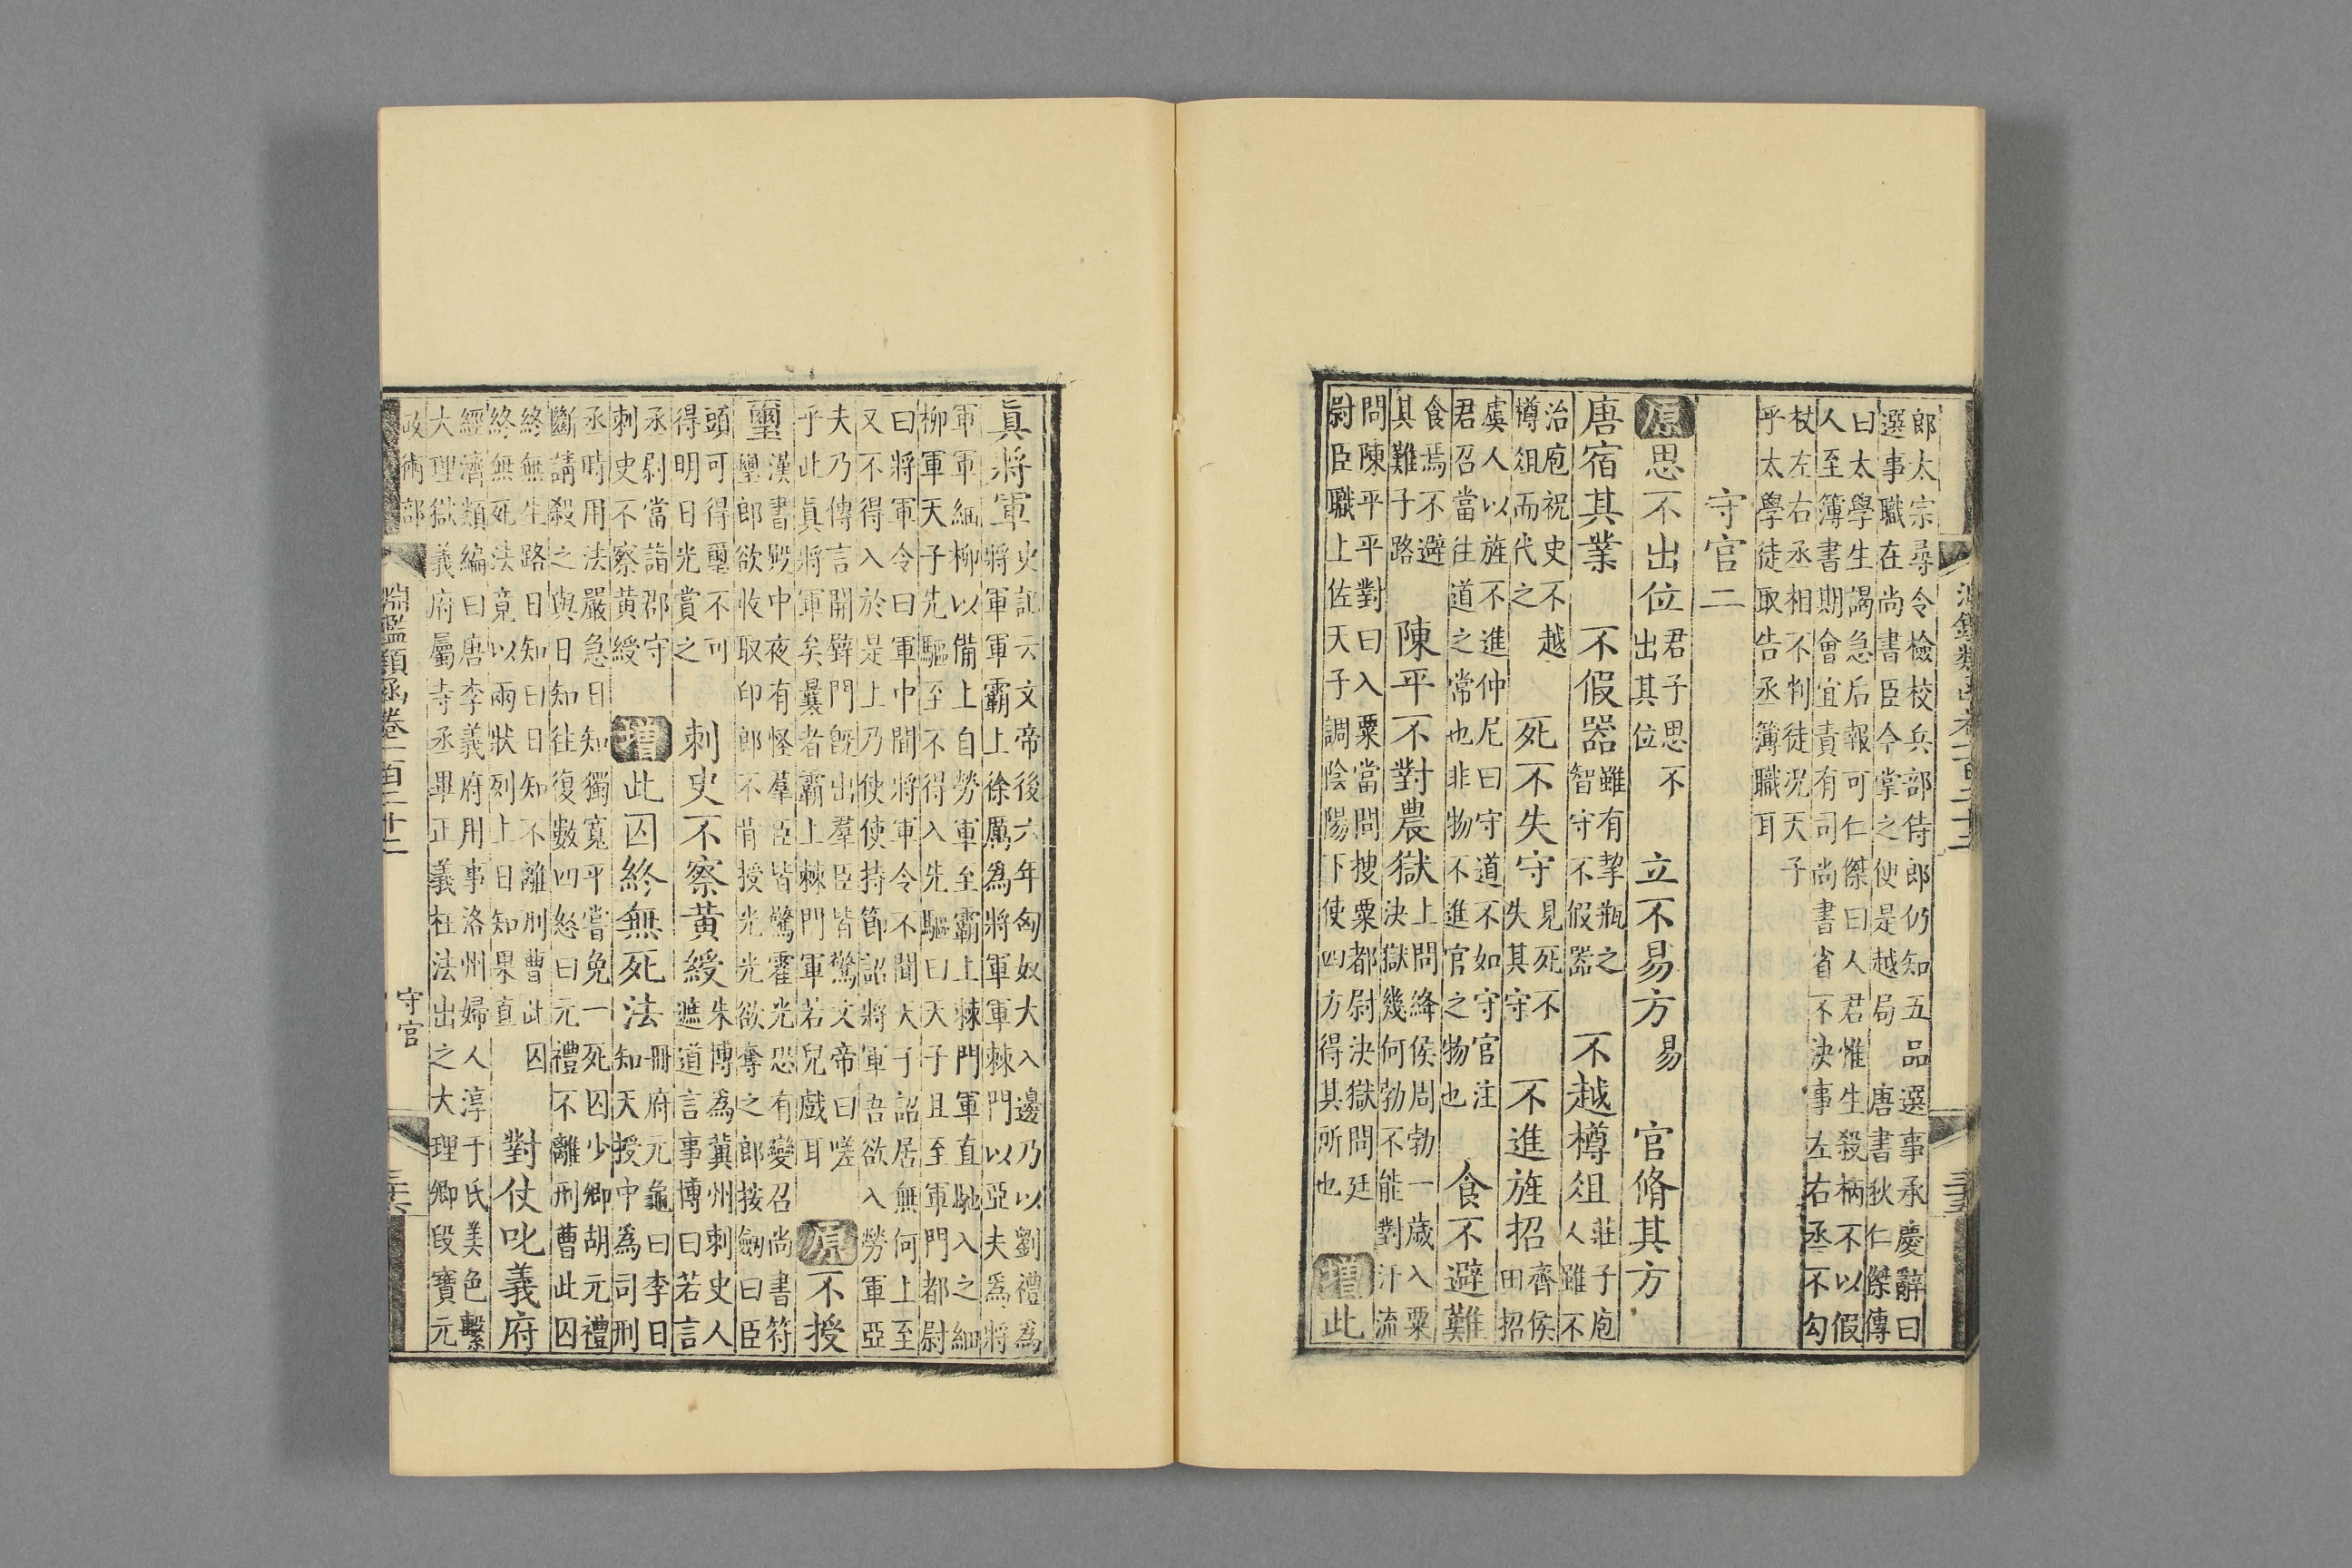 郎太宗尋令檢校兵部侍郎仍知五品選事承慶辭曰
選事職在尚書臣今掌之使是越局 唐書狄仁傑傳
曰太學生謁急后報可仁傑曰人君惟生殺柄不以假
人至簿書期會宜責有司尚書省不決事左右丞不勾
杖左右丞相不判徒況天子
乎太學徒取告丞簿職耳
守官二
原思不出位 君子思不出其位 立不易方 易 官脩其方
唐宿其業 不假器 雖有挈瓶之智守不假器 不越樽俎 莊子庖人雖不
治庖祝史不越樽俎而代之 死不失守 見死不失其守 不進旌招 齊侯田招
虞人以旌不進仲尼曰守道不如守官注
君召當往道之常也非物不進官之物也 食不避難
食焉不避其難子路 陳平不對農獄 上問絳侯周勃一歲入粟決獄幾何勃不能對汗流
問陳平平對曰入粟當問搜粟都尉決獄問廷
尉臣職上佐天子調陰陽下使四方得其所也 增此
真將軍 史記云文帝後六年匈奴大入邊乃以劉禮為
將軍軍霸上徐厲為將軍軍棘門以亞夫為將
軍軍細柳以備上自勞軍至霸上棘門軍直馳入之細
柳軍天子先驅至不得入先驅曰天子且至軍門都尉
曰將軍令曰軍中聞將軍令不聞天子詔居無何上至
又不得入於是上乃使使持節詔將軍吾欲入勞軍亞
夫乃傳言開壁門既出羣臣皆驚文帝曰嗟
乎此真將軍矣曩者霸上棘門軍若兒戲耳 原不授
璽 漢書殿中夜有怪羣臣皆驚霍光恐有變召尚書符
璽郎欲收取印郎不肯授光光欲奪之郎按劒曰臣
頭可得璽不可得明日光賞之 刺史不察黃綬 朱博為冀州刺史人遮道言事博曰若言
丞尉當詣郡守刺史不察黃綬 增此囚終無死法 冊府元龜曰李日知天授中為司刑
丞時用法嚴急日知獨寬平嘗免一死囚少卿胡元禮
斷請殺之與日知往復數四怒曰元禮不離刑曹此囚
終無生路日知曰日知不離刑曹此囚
終無死法竟以兩狀列上日知果直 對仗叱義府
經濟類編曰唐李義府用事洛州婦人淳于氏美色繫
大理獄義府屬寺丞畢正義枉法出之大理卿段寶元
政術部 守官
淵鑑類函卷一百二十二